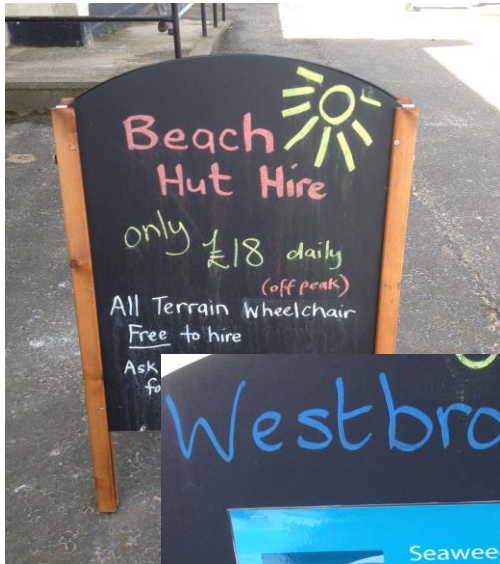 Beach
Hut Hire
only £18 daily
(off peak)
All Terrain Wheelchair
Free to hire
Ask